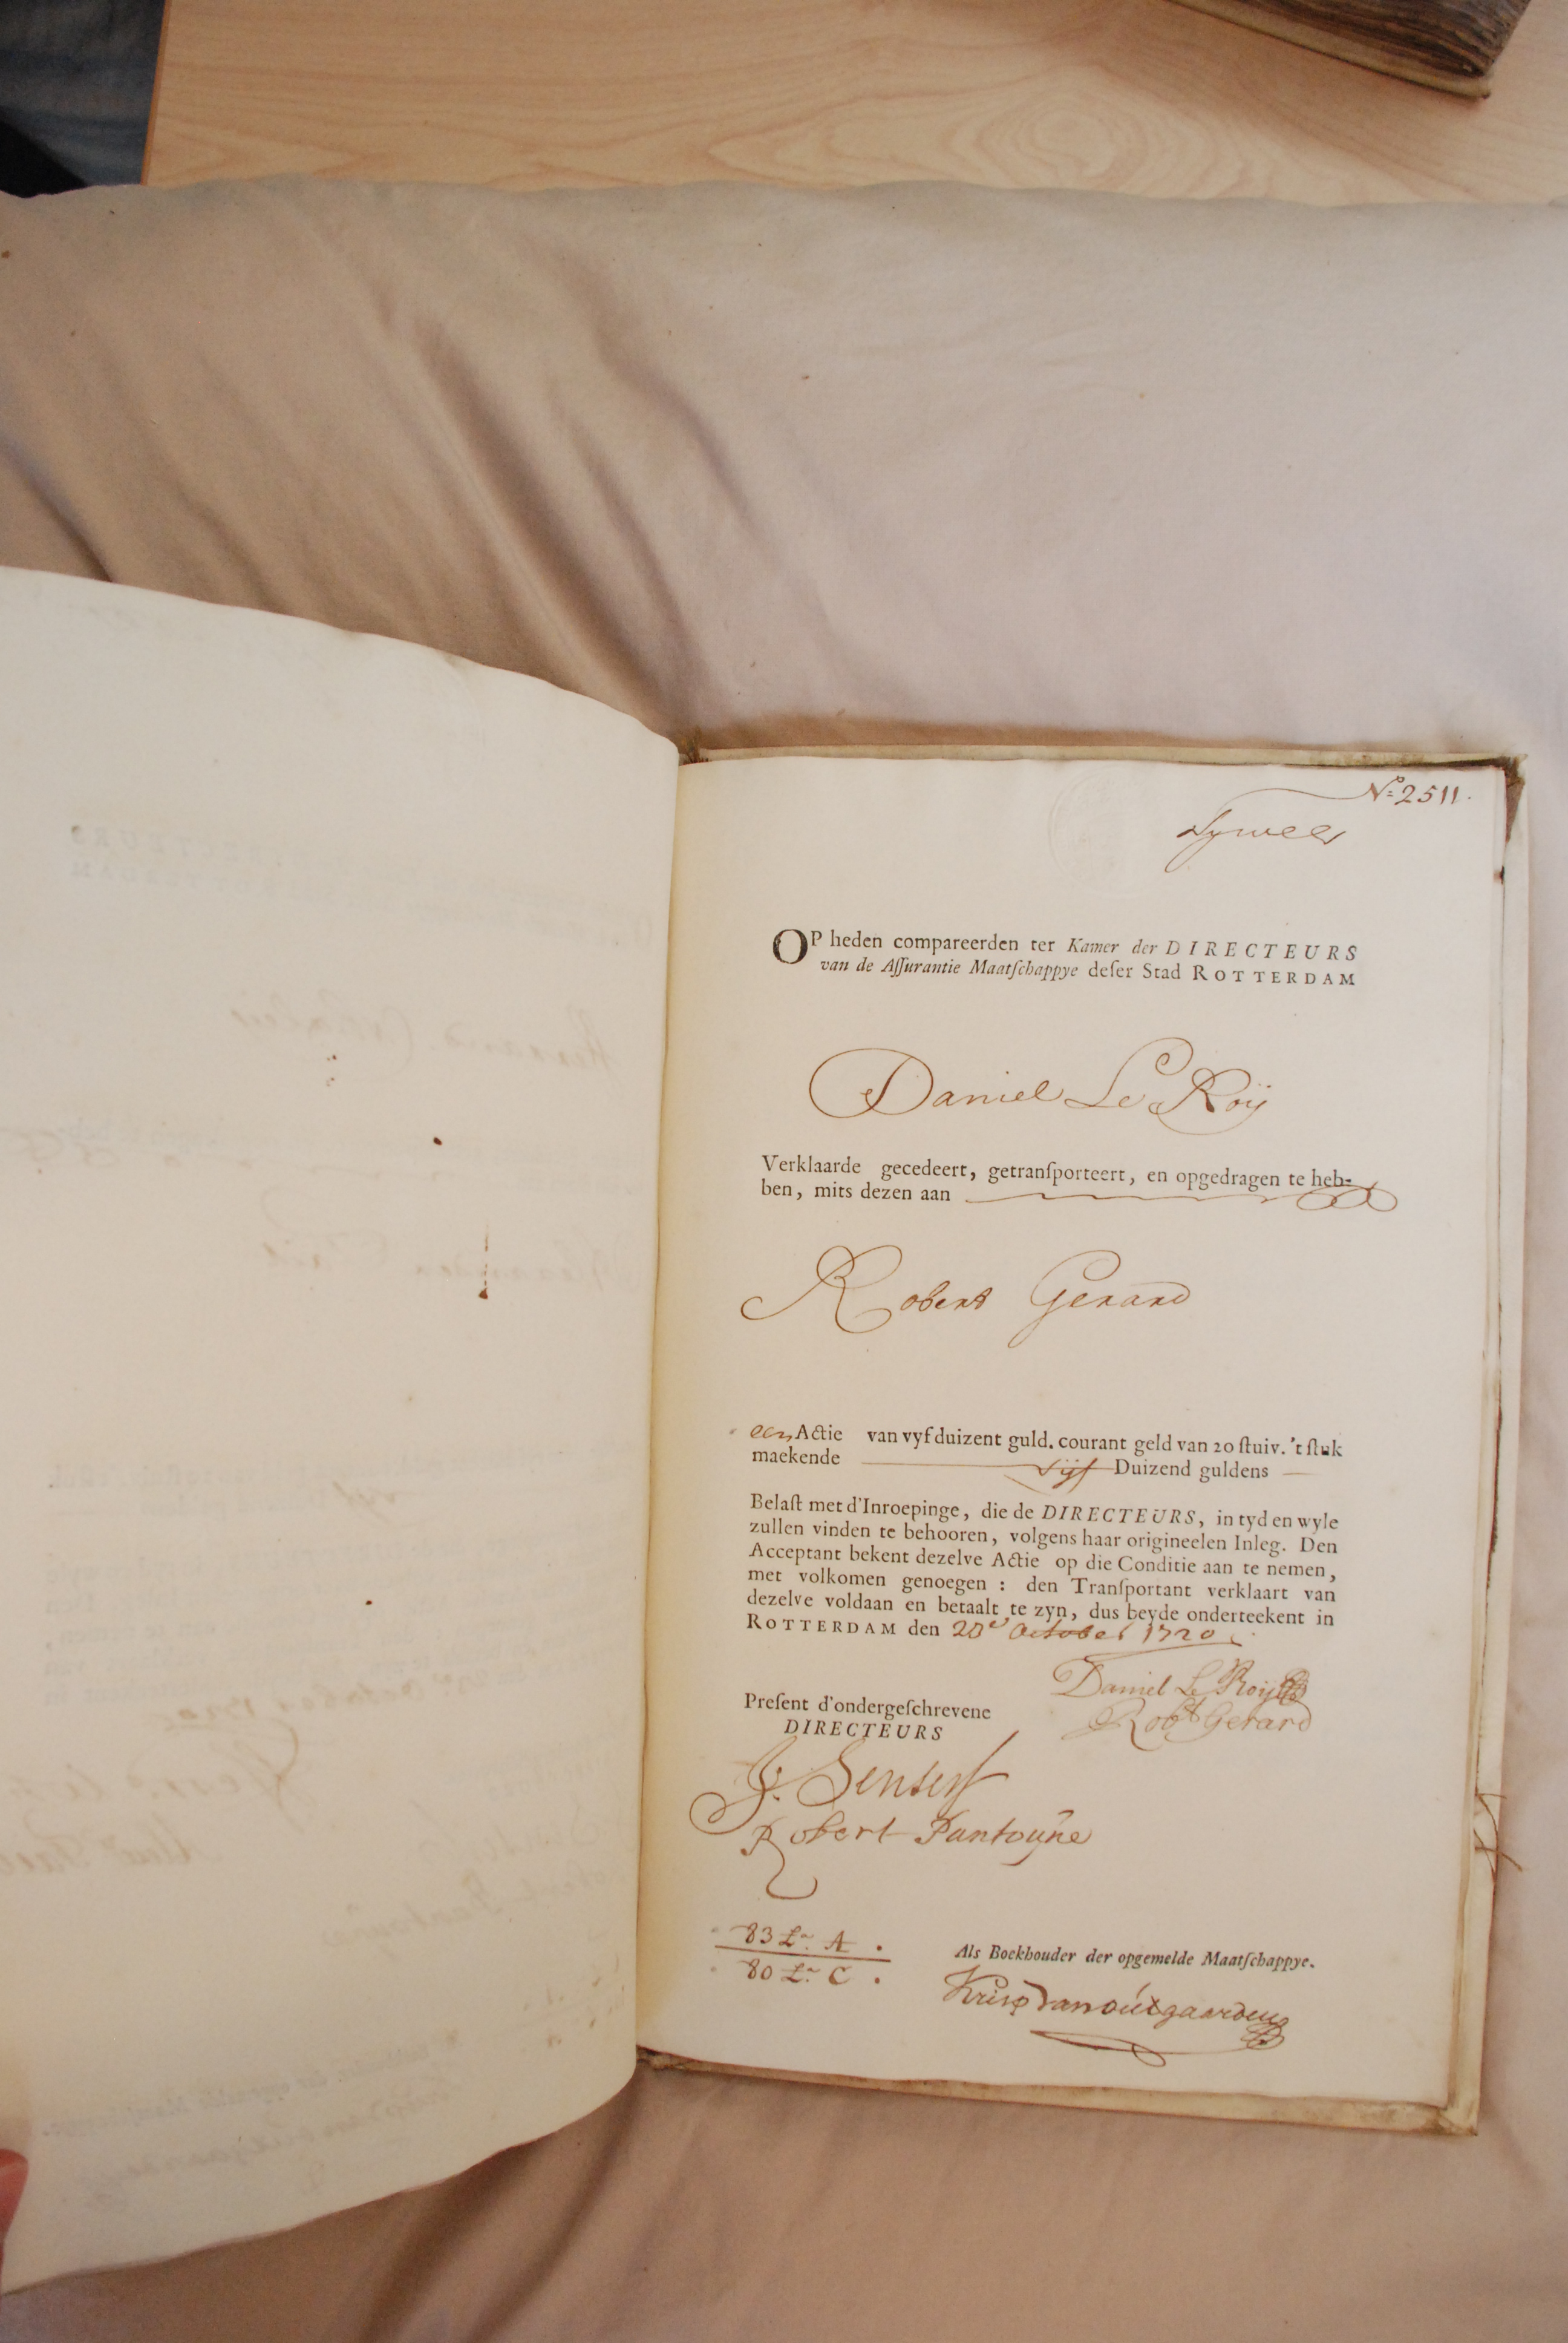 N:o 2511.
OP heden compareerden ter Kamer der DIRECTEURS
van de Aſſurantie Maatſchappye deſer Stad ROTTERDAM
Daniel Le Roÿ
Verklaarde gecedeert, getranſporteert, en opgedragen te heb-
ben, mits dezen aan
Robert Gerard
een Actie van vyf duizent guld. courant geld van 20 ſtuiv. 't ſtuk
maekende vijf Duizend guldens
Belaſt met d'Inroepinge, die de DIRECTEURS, in tyd en wyle
zullen vinden te behooren, volgens haar origineelen Inleg. Den
Acceptant bekent dezelve Actie op die Conditie aan te nemen,
met volkomen genoegen : den Tranſportant verklaart van
dezelve voldaan en betaalt te zyn, dus beyde onderteekent in
ROTTERDAM den 28e October 1720
Daniel Le Roij
Robt Gerard
Preſent d'ondergeſchrevene
DIRECTEURS
J. Senserff
Robert Fantoÿne
83 Lr. A .
80 Lr. C .
Als Boekhouder der opgemelde Maatſchappye.
Krisp van outgaarden